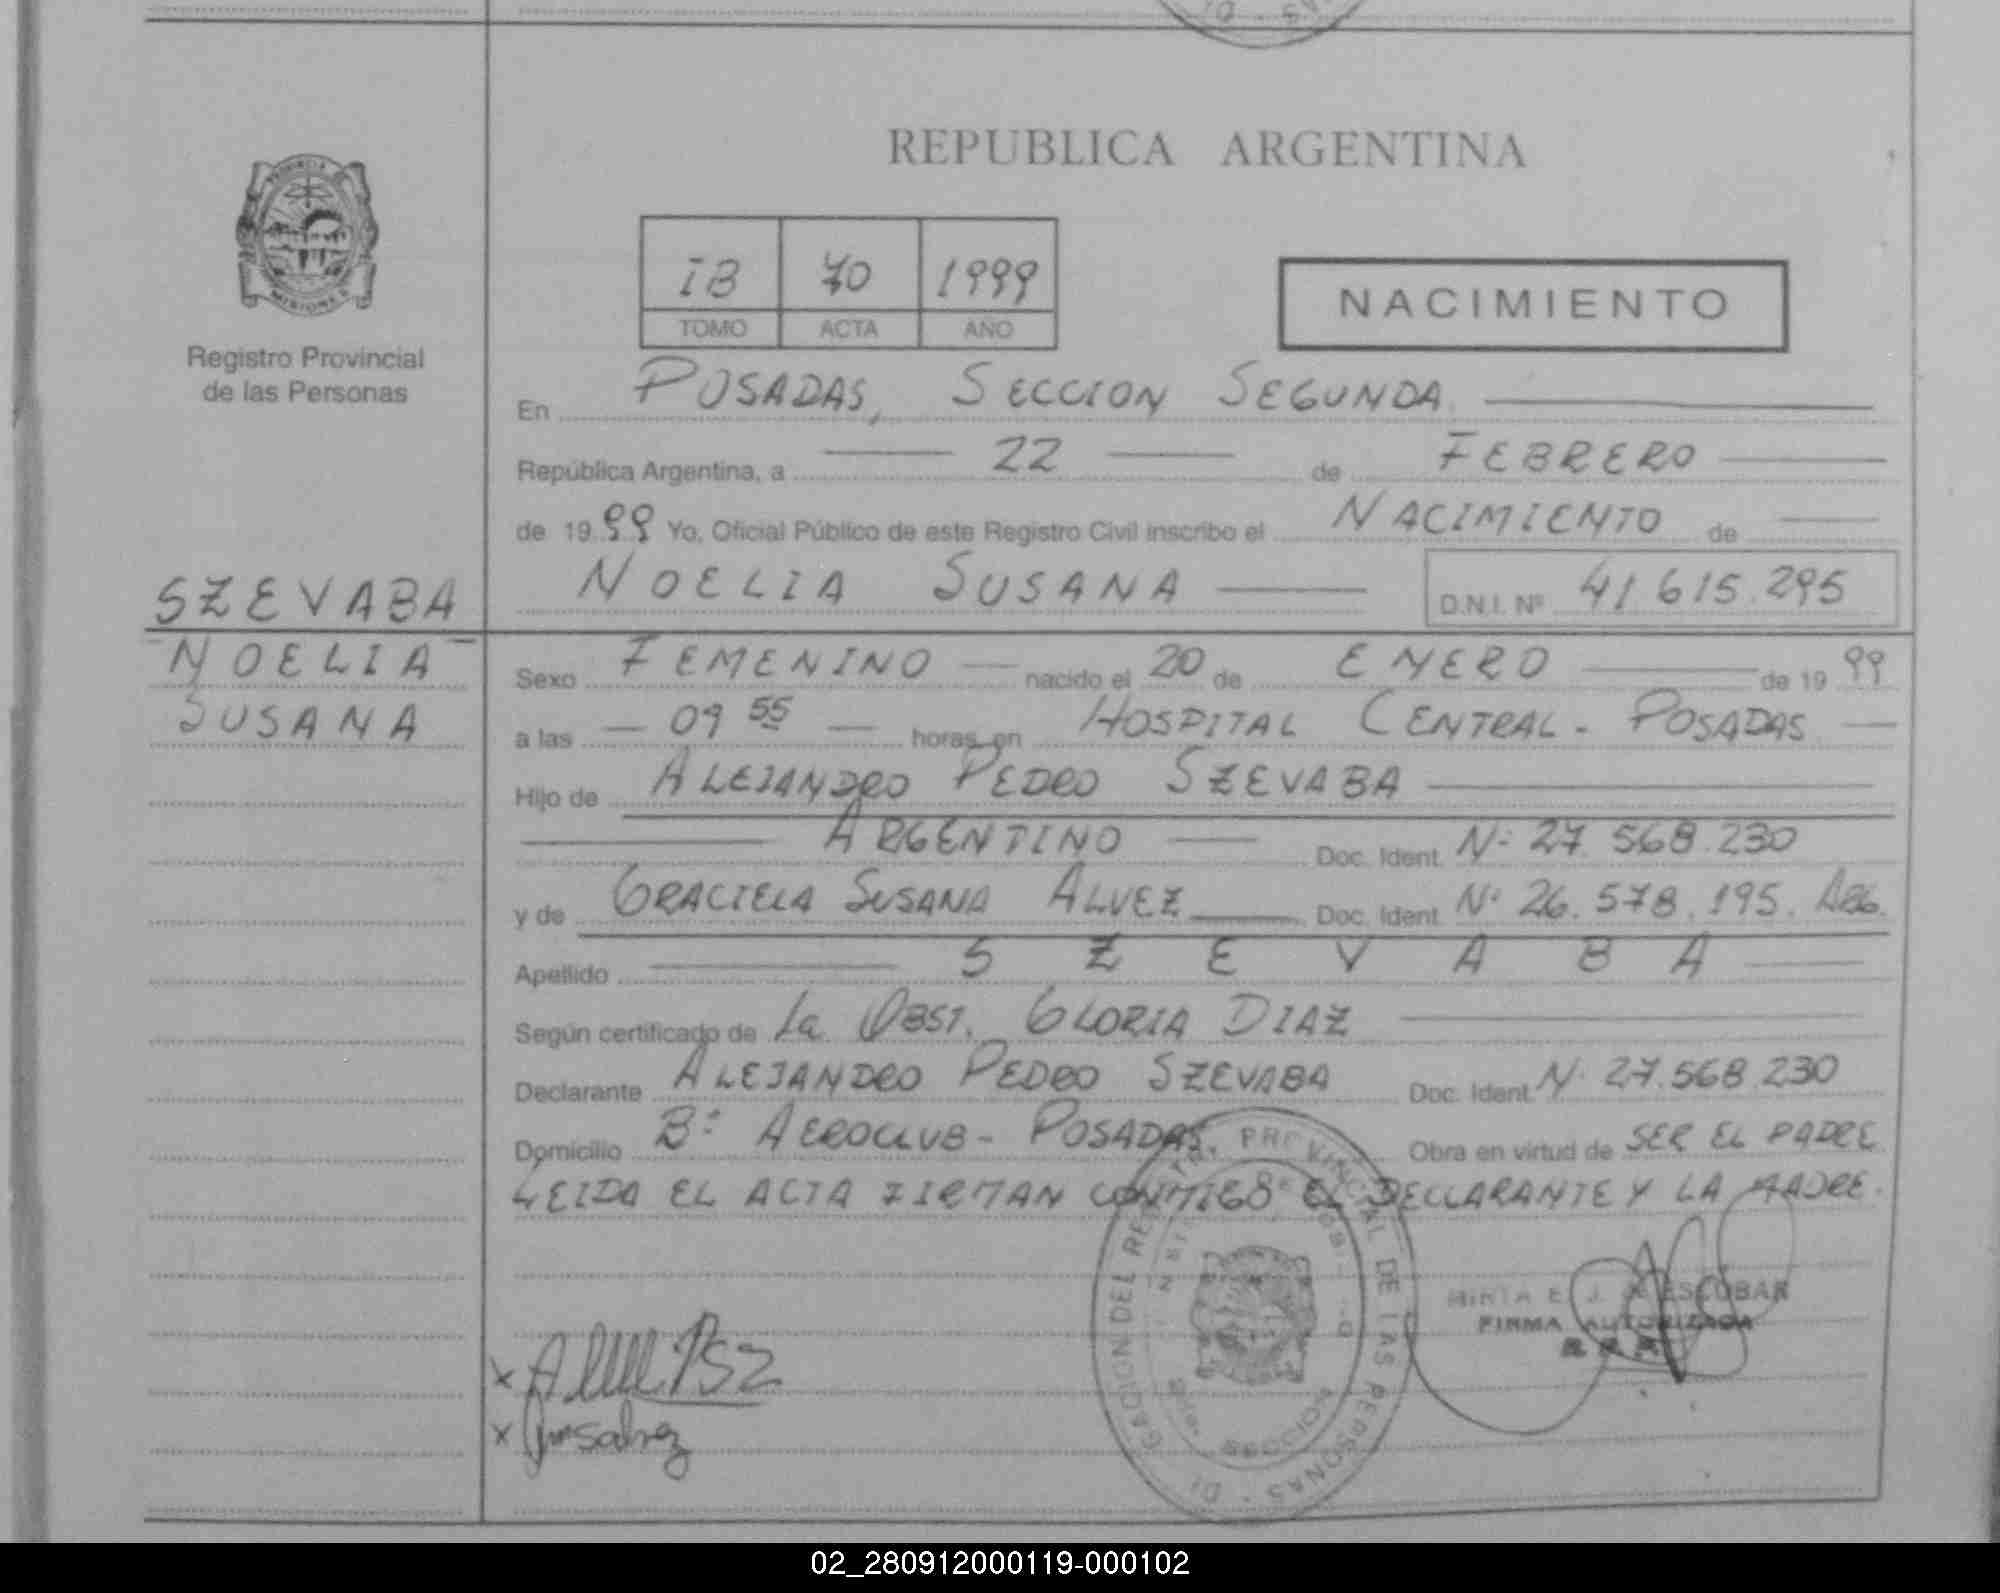 REPUBLICA ARGENTINA
PROVINCIA
MISIONES
Registro Provincial
de las Personas
IB 70 1999
TOMO ACTA AÑO
NACIMIENTO
En POSADAS, SECCION SEGUNDA
República Argentina, a 22 de FEBRERO
de 1999 Yo, Oficial Público de este Registro Civil inscribo el NACIMIENTO de
NOELIA SUSANA D.N.I. Nº 41 615.295
SZEVABA
NOELIA
SUSANA
Sexo FEMENINO nacido el 20 de ENERO de 1999
a las 09 55 horas, en HOSPITAL CENTRAL - POSADAS
Hijo de ALEJANDRO PEDRO SZEVABA
ARGENTINO Doc. Ident. Nº 27.568.230
y de GRACIELA SUSANA ALVEZ Doc. Ident. Nº 26.578.195. ARG.
Apellido SZEVABA
Según certificado de La OBST. GLORIA DIAZ
Declarante ALEJANDRO PEDRO SZEVABA Doc. Ident. Nº 27.568.230
Domicilio Bº AEROCLUB - POSADAS Obra en virtud de SER EL PADRE
LEIDA EL ACTA FIRMAN CONMIGO EL DECLARANTE Y LA MADRE.
MIRTA E. J. ESCOBAR
FIRMA AUTORIZADA
DEL REGISTRO PROVINCIAL DE LAS PERSONAS
02_280912000119-000102